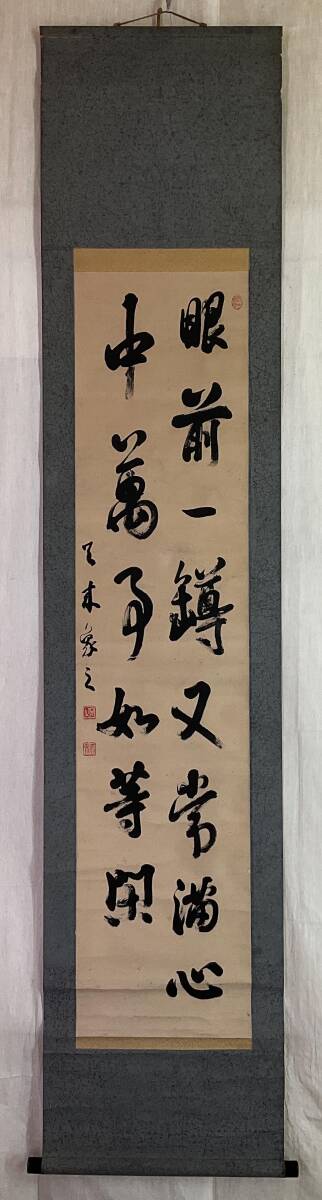 眼前一鐏又常滿心
中萬事如等閑
天來象之